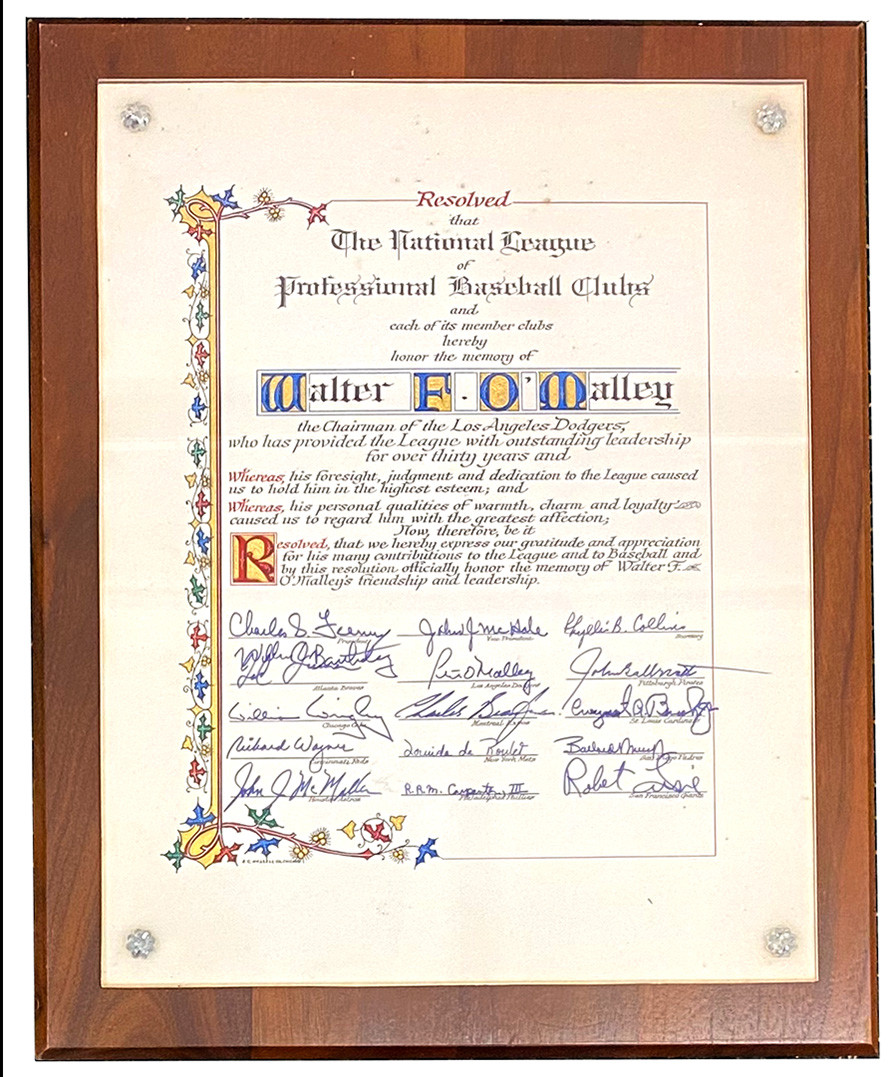 Resolved
that
The National League
of
Professional Baseball Clubs
and
each of its member clubs
hereby
honor the memory of
Walter F. O'Malley
the Chairman of the Los Angeles Dodgers,
who has provided the League with outstanding leadership
for over thirty years and
Whereas, his foresight, judgment and dedication to the League caused
us to hold him in the highest esteem; and
Whereas, his personal qualities of warmth, charm and loyalty
caused us to regard him with the greatest affection;
Now, therefore, be it
Resolved, that we hereby express our gratitude and appreciation
for his many contributions to the League and to Baseball and
by this resolution officially honor the memory of Walter F.
O'Malley's friendship and leadership.
Charles S. Feeney John J. McHale Phyllis B. Collins
President Vice President Secretary
Peter O'Malley John Galbreath
Atlanta Braves Los Angeles Dodgers Pittsburgh Pirates
William Wrigley Charles Bronfman
Chicago Cubs Montreal Expos St. Louis Cardinals
Richard Wagner Lorinda de Roulet
Cincinnati Reds New York Mets San Diego Padres
John J. McMullen R.R.M. Carpenter, III Robert Lurie
Houston Astros Philadelphia Phillies San Francisco Giants